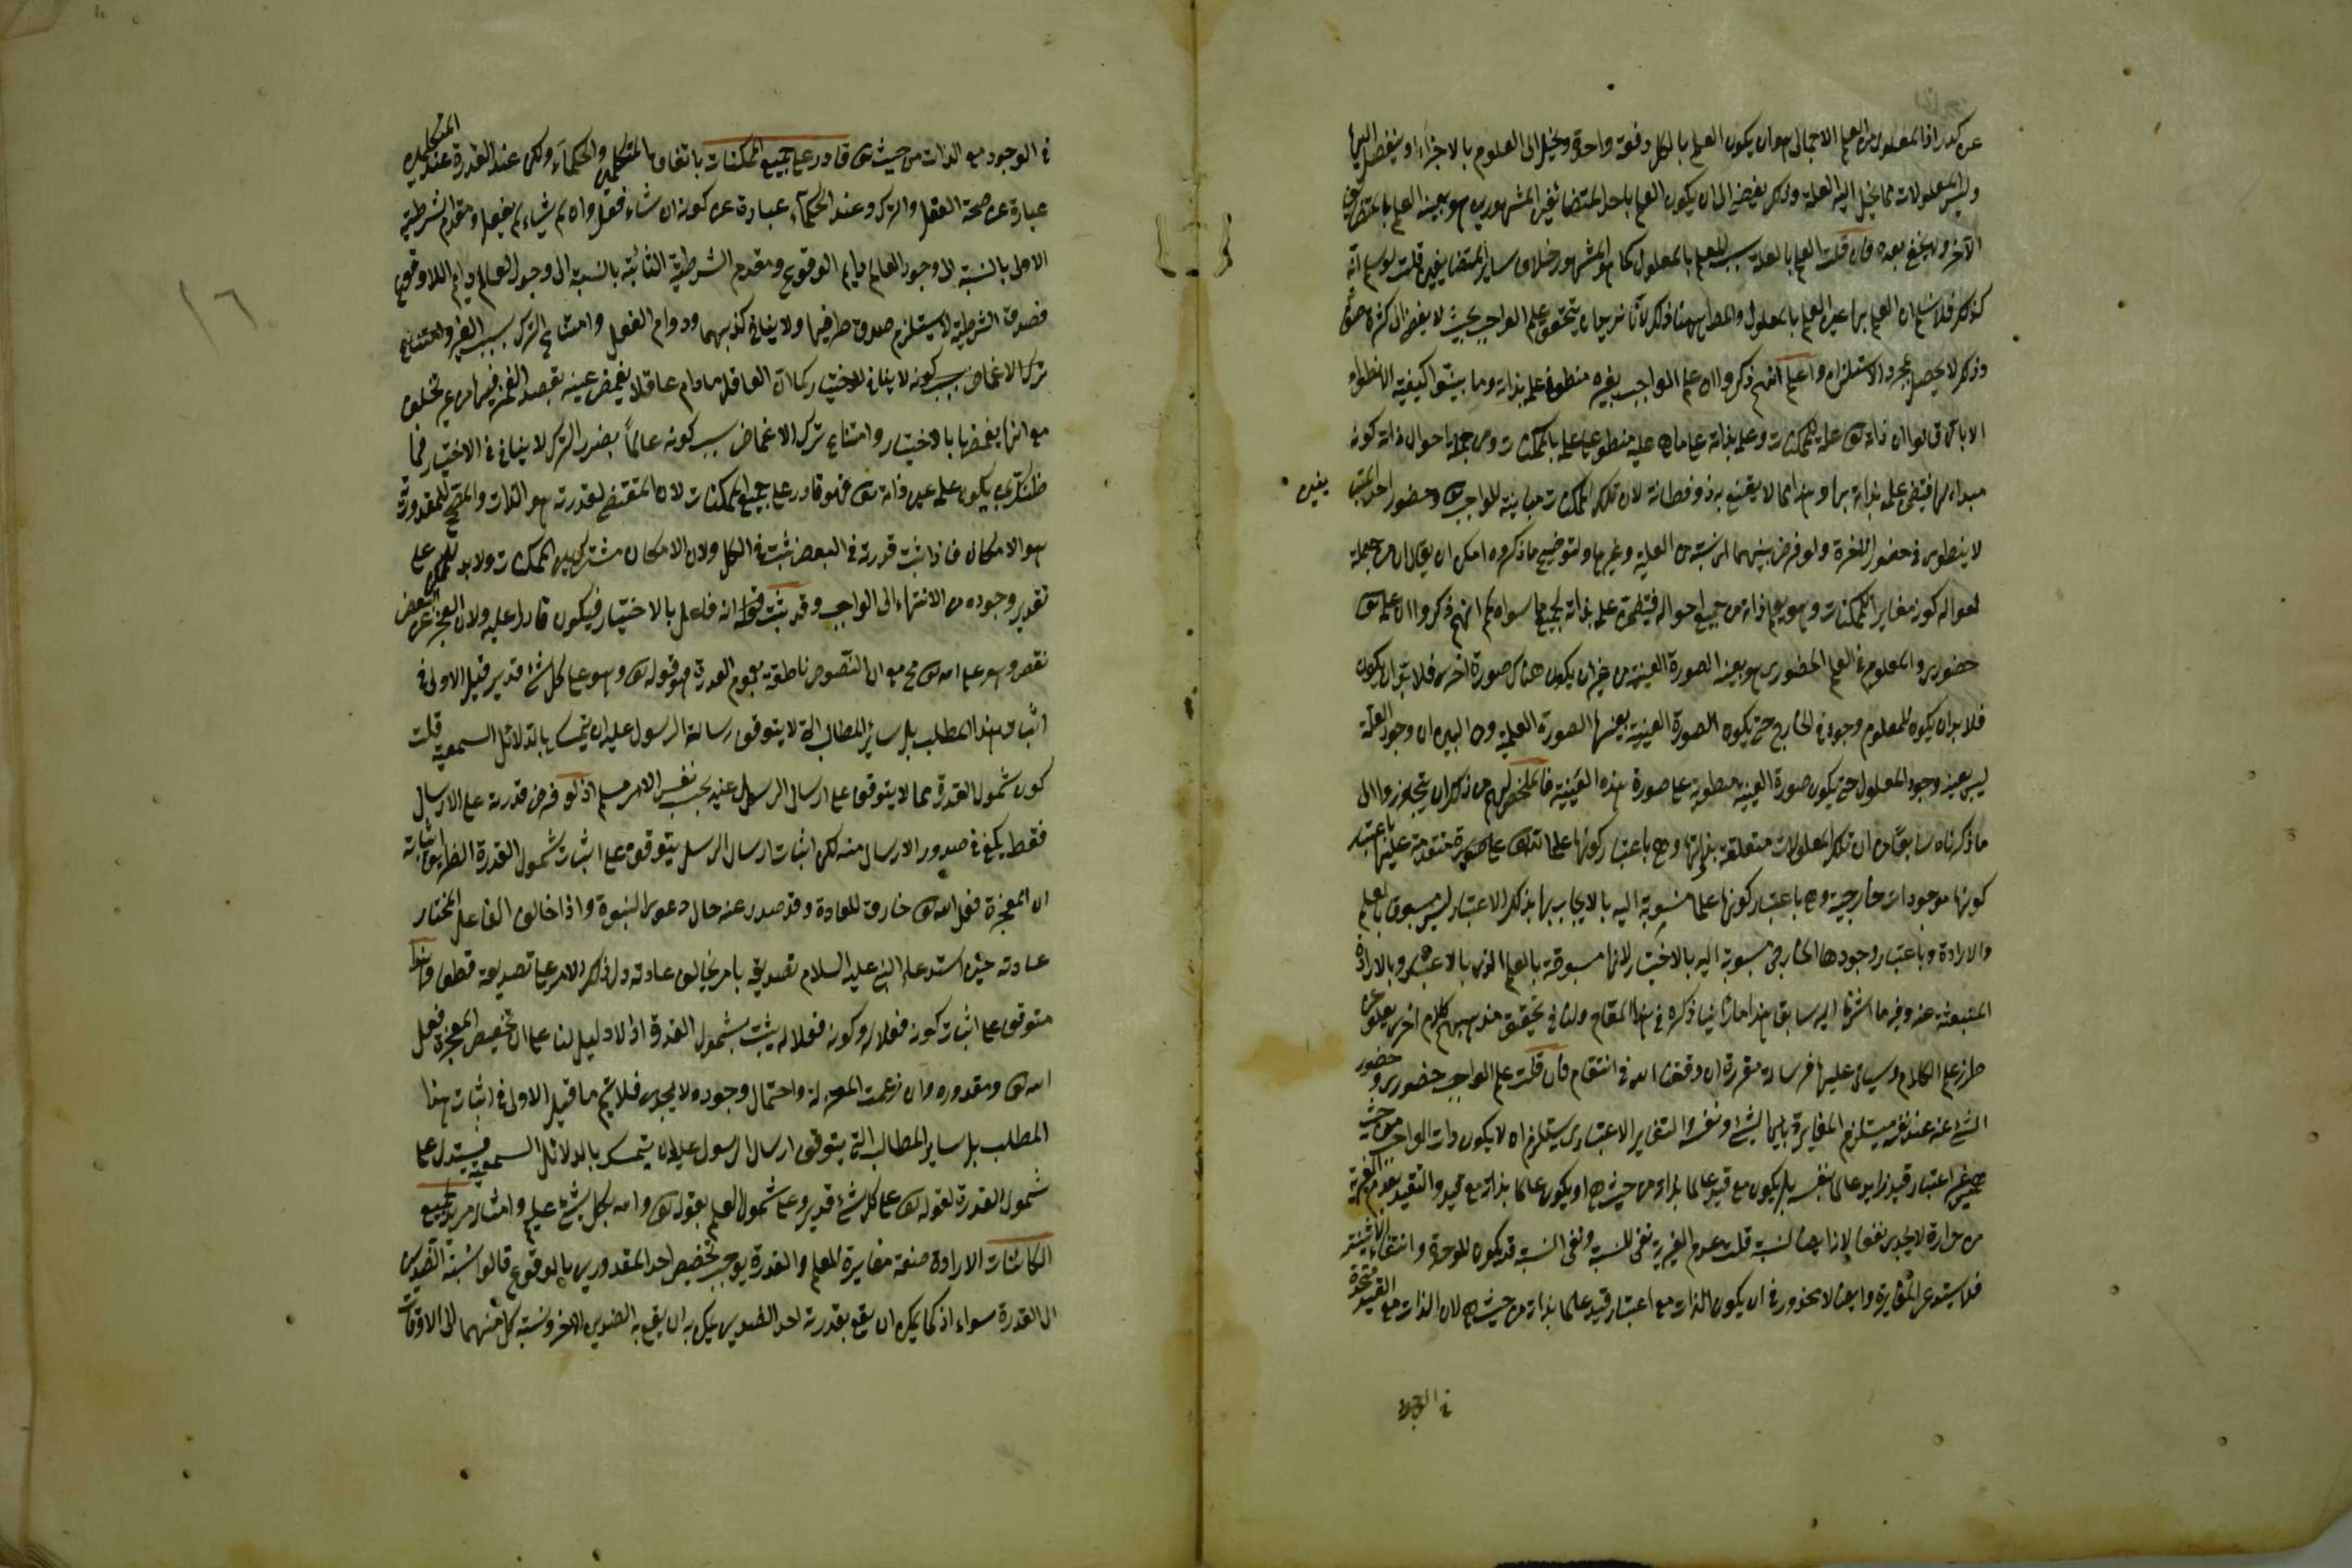 عن كدر اذا المعلوم من العلم الاجمالى هو ان يكون العلم بالكل دفعة واحدة وينحل الى العلوم بالاجزاء او ينفصل اليها
وليس المعلولات مما ينحل اليه العلة وذلك يفضى الى ان يكون العلم باحد المتضائفين المشهورين هو بعينه العلم بالمتضايف
الآخر ولا يخفى بعده فان قلت العلم بالعلة سبب للعلم بالمعلول كما هو المشهور بخلاف ساير المتضايفين قلت لو سلم انه
كذلك فلا نسلم ان العلم بها عين العلم بالمعلول والمطلوب ههنا ذلك يتحقق علم الواجب بحيث لا يفضى الى كثرة
وذلك لا يحصل بمجرد الاستلزام واعلم انهم ذكروا ان علم الواجب بغيره منطو فى علمه بذاته وما بينوا كيفية الانطواء
الا بان قالوا ان ذاته تع علة للممكنات وعلمه بذاته على ما هى عليه منطو على علمه بالممكنات ومن جملة احوال ذاته كونه
مبداء لها فيقتضى علمه بذاته بها وهذا مما لا يقنع به ذو فطانة لان تلك الممكنات مباينة للواجب تع وحضور احد المتباينين
لا ينطوى فى حضور الآخر ولو فرض بينهما اى نسبة من العلية وغيرها ولتوضيح ما ذكروه امكن ان يقال ان من جملة
احواله كونه مغايرا للممكنات وهو يعلم ذاته من جميع احواله فينطوى علمه بذاته بجميع ما سواه ثم انهم ذكروا ان علمه تع
حضورى والمعلوم فى العلم الحضورى هو بعينه الصورة العينية من غير ان يكون هناك صورة اخرى فلا بد ان يكون
فلا بد ان يكون للمعلوم وجود فى الخارج حتى يكون الصورة العينية بعينها الصورة العلمية ومن البين ان وجود العلة
ليس بعينه وجود المعلول حتى يكون صورة العينية منطوية على صورة هذه العينية فالمخلص لهم من ذلك ان يتجاوزوا الى
ما ذكرناه سابقا من ان تلك المعلولات متعلقة بذاتها وهى باعتبار كونها علما لله تع على صورة متقدمة عليها باعتبار
كونها موجودات خارجية وهى باعتبار كونها علما منسوبة اليه بالايجاب بها بذلك الاعتبار ليس مسبوق بالعلم
والارادة وباعتبار وجودها الخارجى منسوبة اليه بالاختيار لانها مسبوقة بالعلم الذى بالاعتبار وبالارادة
المنبعثة عنه وفيه ما اشرنا اليه سابقا هذا ما اردنا ذكره فى هذا المقام ولنا فى تحقيق مذهبهم كلام اخر يعلو عن
طرز علم الكلام وسياتى عليها فى رسالة مفردة ان وفقنا الله فى انتقام فان قلت علم الواجب حضورى وحضور
الشئ عنه عند نفسه يستلزم المغايرة بين الشئ ونفسه والتغاير الاعتبارى يستلزم ان لا يكون ذات الواجب من حيث
هى من غير اعتبار قيد زايد عالما بنفسه بل يكون مع قيد عالما بذاته من حيث هى او يكون عالما بذاته مع قيد والتقيد بعدم الغيرية
من حرارة لا يجدى نفعا لانا ايضا نسبة قلت عدم الغيرية نفى للنسبة ونفى النسبة قد يكون للوحدة وانتفاء الاثنينية
فلا يستدعى المغايرة وايضا لا محذور فى ان يكون الذات مع اعتبار قيد علما بذاته من حيث هى لان الذات مع القيد متحدة
فى الوجود
فى الوجود مع الذات من حيث هى قادر على جميع الممكنات باتفاق المتكلمين والحكماء ولكن عند القدرة عند المتكلمين
عبارة عن صحة الفعل والترك وعند الحكماء عبارة عن كونه ان شاء فعل وان لم يشاء لم يفعل ومقدم الشرطية
الاولى بالنسبة الى وجود العالم دايم الوقوع ومقدم الشرطية الثانية بالنسبة الى وجود العالم دايم اللاوقوع
فصدق الشرطية لا يستلزم صدق طرفيها ولا ينافى كذبهما ودوام الفعل وامتناع الترك بسبب الغير وامتناع
ترك الاغماض بسبب كونه لا ينافى الاختيار كما ان العاقل ما دام عاقلا يغمض عينيه بقصد الغمز فيها من غير تخلف
مع انها يغمضها بالاختيار وامتناع ترك الاغماض بسبب كونه عالماً بضرر الترك لا ينافى فى الاختيار فما
ظنك بمن يكون علمه عين ذاته تع فهو قادر على جميع الممكنات لان المقتضى لقدرته هو الذات والمصحح للمقدورية
هو الامكان فاذا ثبت قدرته فى البعض ثبت فى الكل ولان الامكان مشترك بين الممكنات ولا بد للممكن على
تقدير وجوده من الانتهاء الى الواجب وقد ثبت انه فاعل بالاختيار فيكون قادرا عليه ولان العجز عن البعض
نقص وهو على الله تع مح مع ان النصوص ناطقة بعموم القدرة نحو قوله تع وهو على كل شئ قدير قيل الاولى فى
اثبات هذا المطلب بل سائر المطالب التى لا يتوقف رسالة الرسول عليه ان يتمسك بالدلائل السمعية قلت
كون شمول القدرة مما لا يتوقف على ارسال الرسل عنه بحسب نفس الامر مسلم اذ لو فرض قدرته على الارسال
فقط يكفى فى صدور الارسال منه لكن اثبات ارسال الرسل يتوقف على اثبات شمول القدرة اذ طريق اثباته
ان المعجزة فعل الله تع خارق للعادة وقد صدر عنه حال دعوى النبوة واذا خالف الفاعل المختار
عادته حين استدعاء النبى عليه السلام تصديقه بامر يخالف عادته دل ذلك الامر على تصديقه قطعا وهذا
متوقف على اثبات كونه فعلا له وكونه فعلا له يثبت بشمول القدرة اذ لا دليل لنا على ان تخصيص المعجزة فعل
الله تع ومقدوره وان زعمت المعتزلة واحتمال وجوده لا يجدى فلا يتم ما قيل الاولى فى اثبات هذا
المطلب بل ساير المطالب التى يتوقف ارسال الرسول عليها ان يتمسك بالدلائل السمعية فيستدل على
شمول القدرة لقوله تع على كل شئ قدير وعلى شمول العلم بقوله تع والله بكل شئ عليم وامثاله مريد لجميع
الكائنات الارادة صفة مغايرة للعلم والقدرة يوجب تخصيص احد المقدورين بالوقوع قالوا نسبة الضدين
الى القدرة سواء اذ كما يمكن ان يقع بقدرته احد الضدين يمكن به ان يقع به الضد الاخر ونسبة كل منهما الى الاوقات
١٦